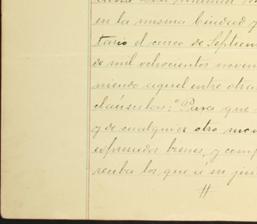 en la misma Ciudad y
tario el cinco de Septiem
de mil ochocientos noven
niendo aquel entre otras
cláusulas: "Para que
y de cualquier otro mo
expresados bienes, y com
reciba los que á su ju